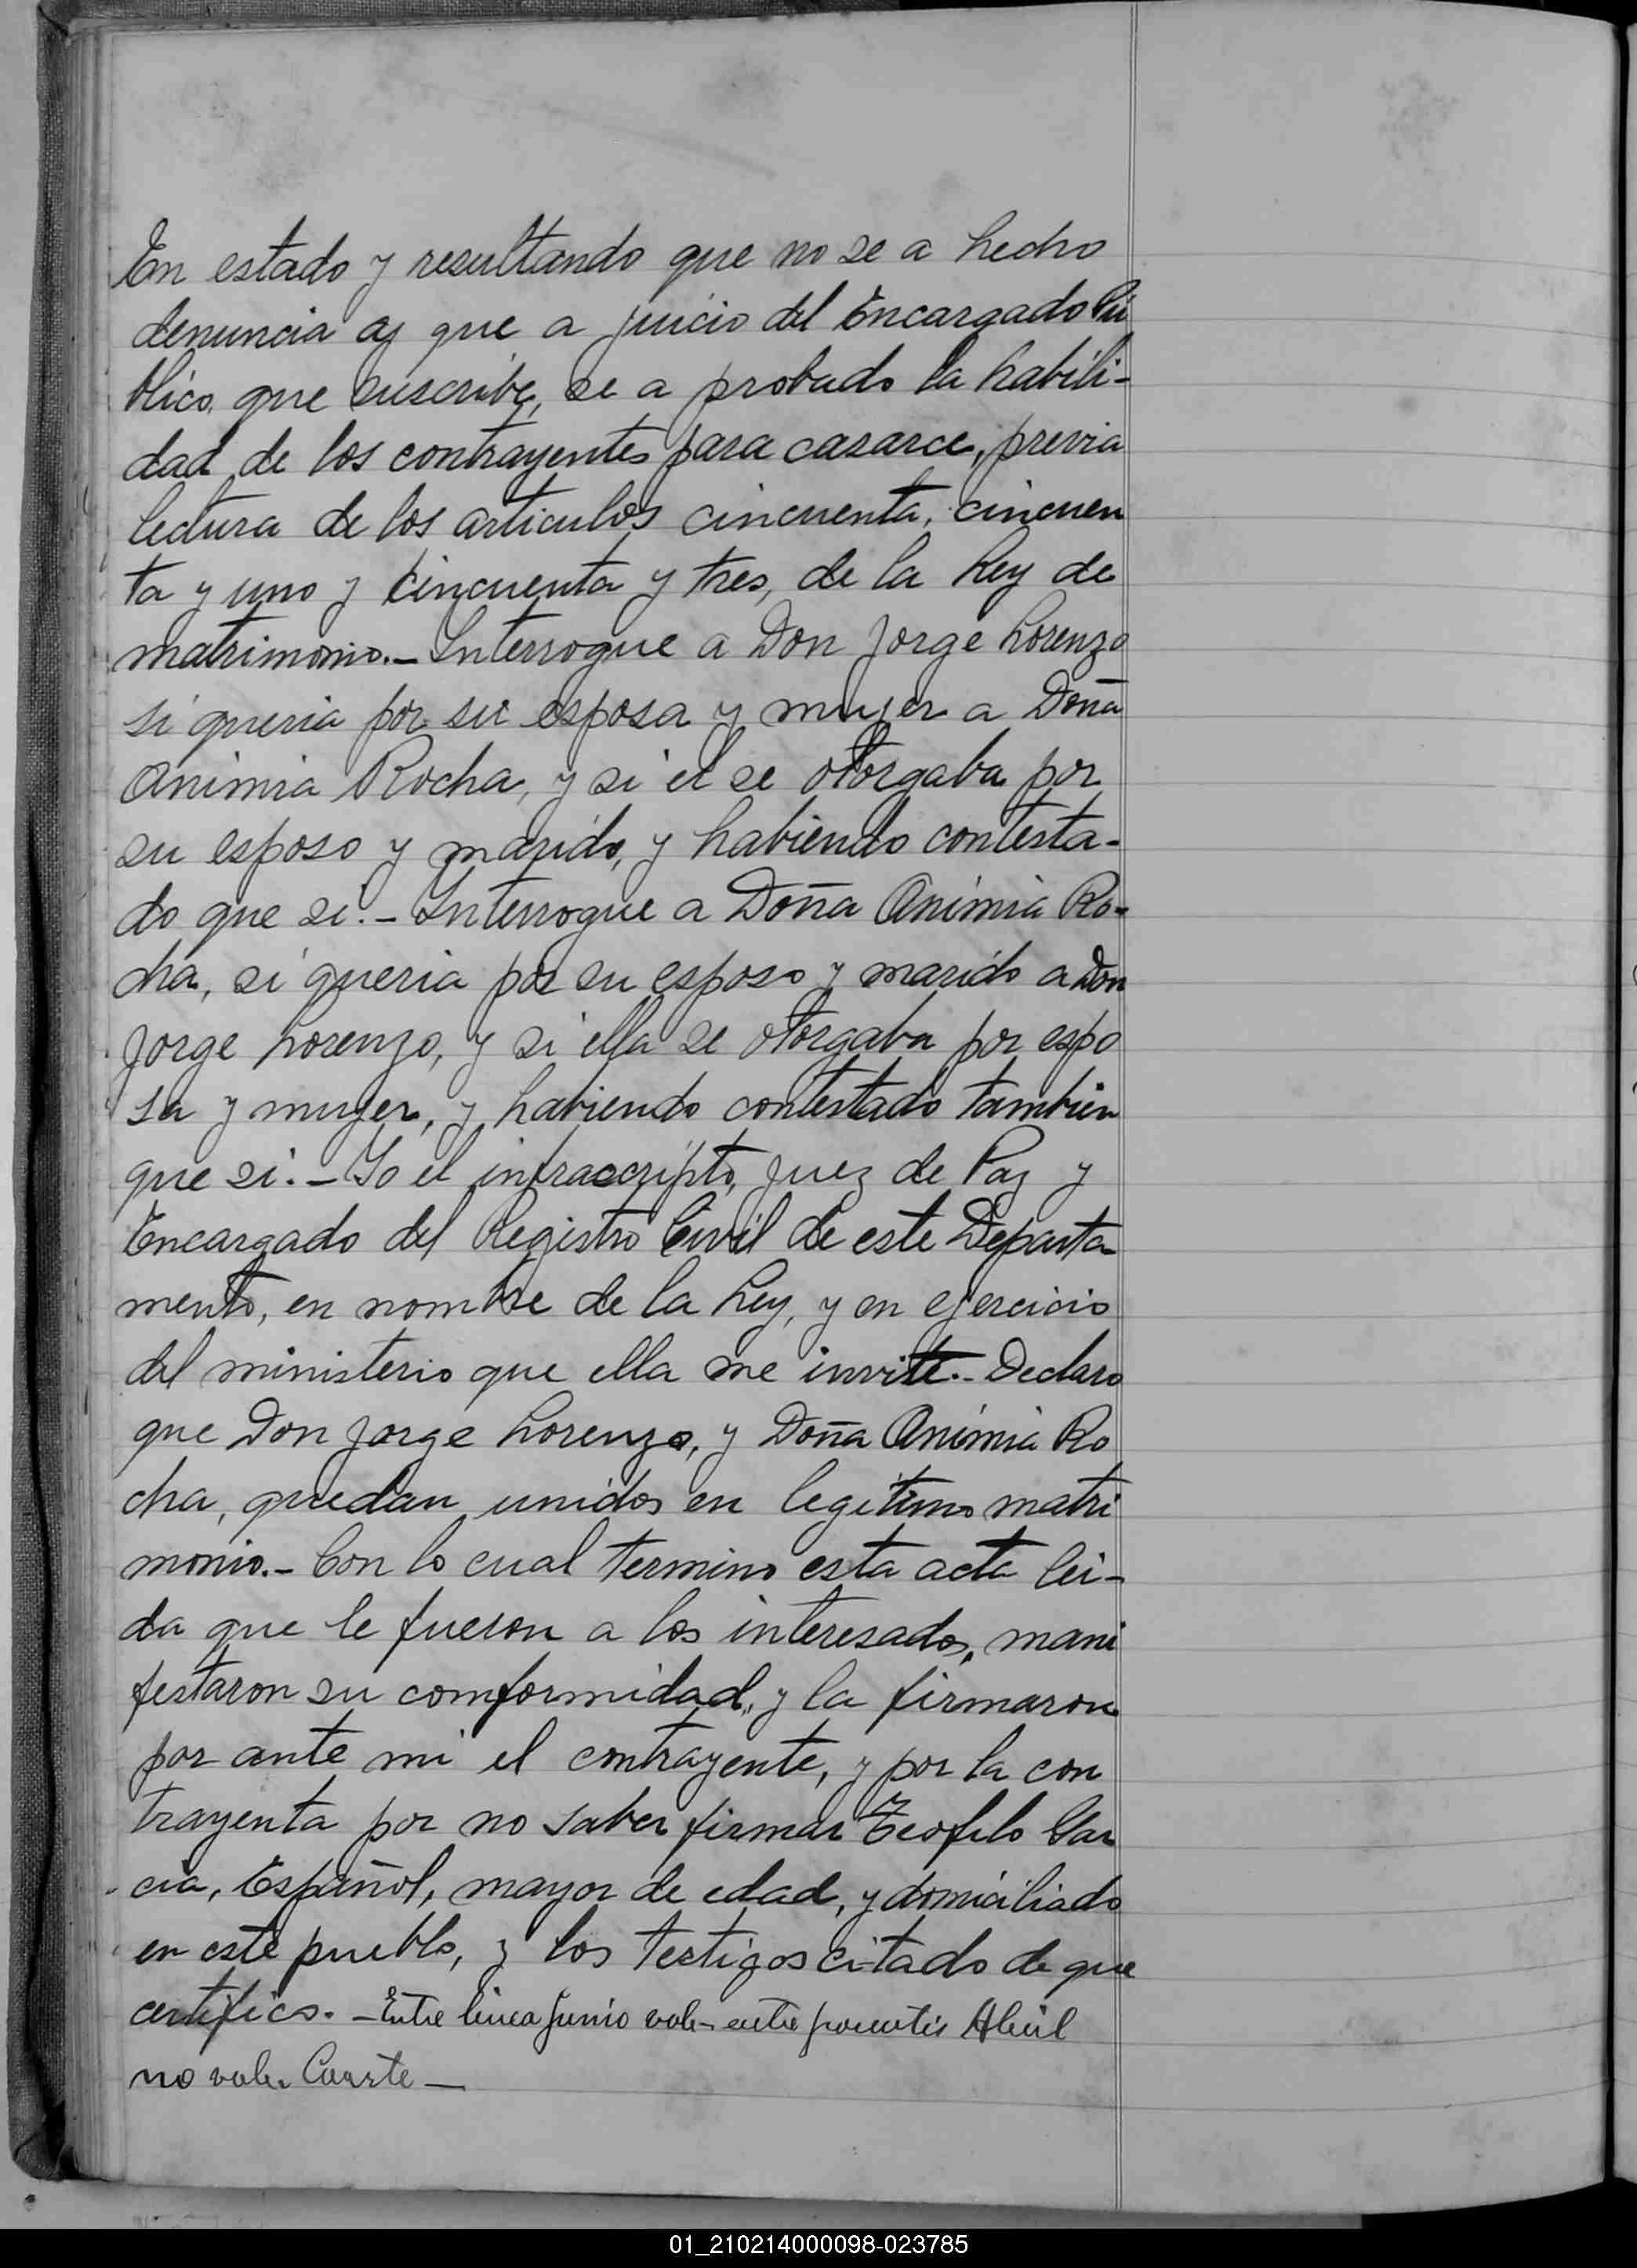 En estado y resultando que no se a hecho
denuncia y que a juicio del Encargado Pú
blico que suscribe, se a probado la habili-
dad de los contrayentes para casarce, previa
lectura de los articulos cincuenta, cincuen
ta y uno y cincuenta y tres, de la Ley de
matrimonio.- Interrogue a Don Jorge Lorenzo
si queria por su esposa y mujer a Doña
Animia Rocha, y si el se otorgaba por
su esposo y marido, y habiendo contesta-
do que si.- Interrogue a Doña Animia Ro-
cha, si queria por su esposo y marido a Don
Jorge Lorenzo, y si ella se otorgaba por espo
sa y mujer, y habiendo contestado tambien
que si.- Yo el infrascripto, Juez de Paz y
Encargado del Registro Civil de este Departa
mento, en nombre de la Ley, y en ejercicio
del ministerio que ella me invite.- Declaro
que Don Jorge Lorenzo, y Doña Animia Ro
cha, quedan unidos en legitimo matri
monio.- Con lo cual termino esta acta lei-
da que le fueron a los interesados, mani
festaron su comformidad, y la firmaron
por ante mi el contrayente, y por la con
trayenta por no saber firmar Teofilo Gar
cia, Español, mayor de edad, y domiciliado
en este pueblo, y los testigos citado de que
certifico. - Entre linea Junio vale- entre parentis Abril
no vale. Conste -
01_210214000098-023785